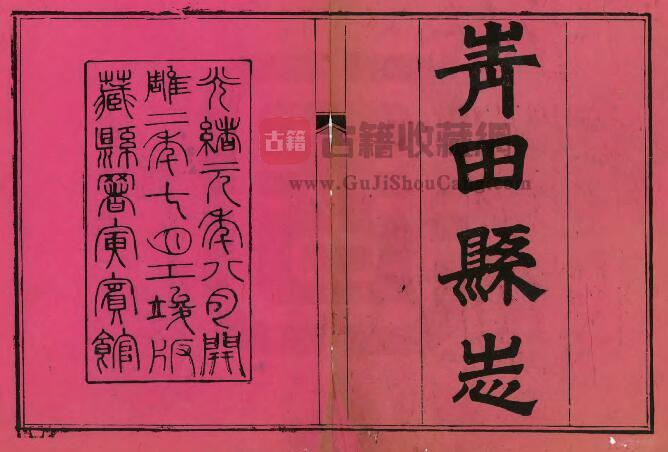 青田縣志
光緒元年八月開
雕二年七月工竣版
藏縣署寅賓館
古籍
古籍收藏網
www.GuJiShouCang.com